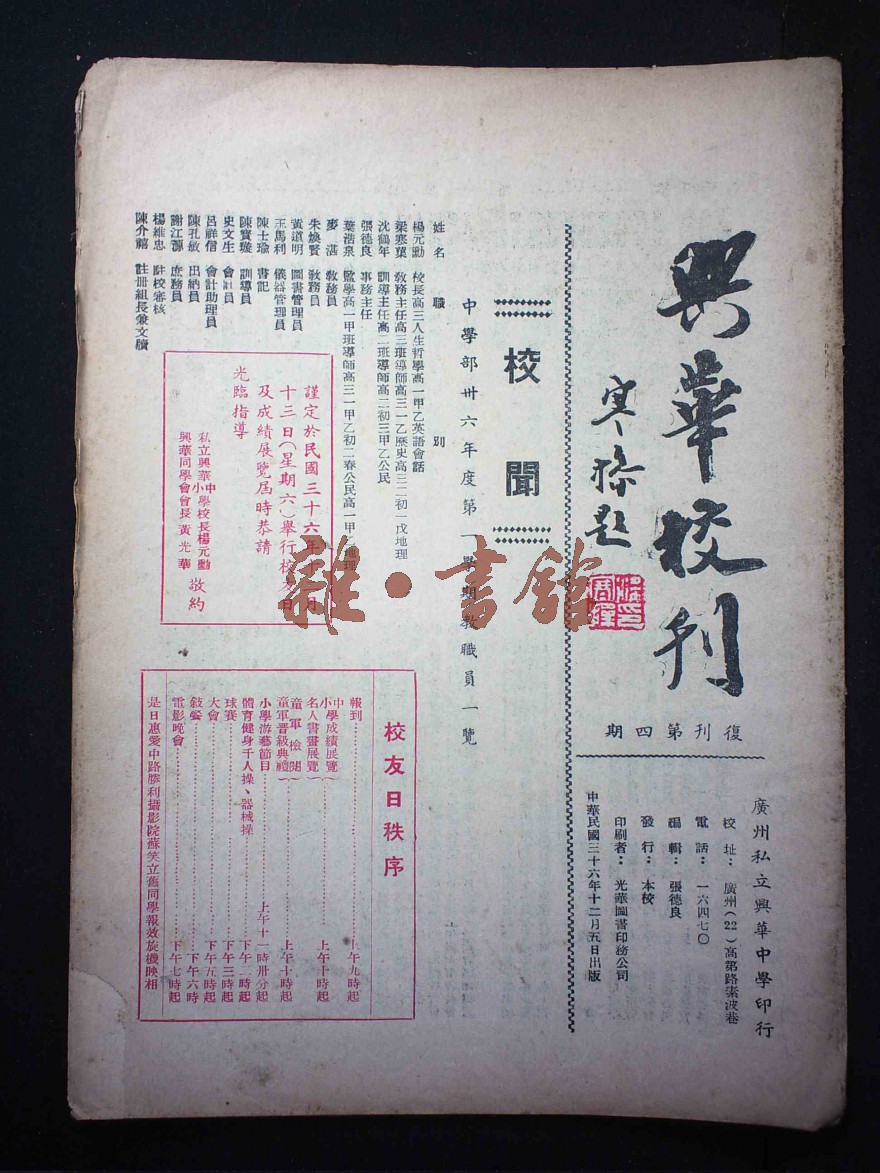 興華校刊
寒操題
復刊第四期
廣州私立興華中學印行
校址：廣州(22)高第路素波巷
電話：一六四七〇
編輯：張德良
發行：本校
印刷者：光華圖書印務公司
中華民國三十六年十二月五日出版
校聞
中學部卅六年度第一學期教職員一覽
姓名 職別
楊元勳 校長高三人生哲學高一甲乙英語會話
梁寒菓 教務主任高三班導師高三一乙歷史高三二初一戊地理
沈鶴年 訓導主任高二班導師高二初三甲乙公民
張德良 事務主任
葉浩泉 監學高一甲班導師高三一甲乙初二春公民高一甲 地理
麥湛 教務員
朱煥賢 教務員
黃道明 圖書管理員
王馬利 儀器管理員
陳士瑜 書記
陳寶璇 訓導員
史文生 會計員
呂祥信 會計助理員
陳孔敏 出納員
謝江源 庶務員
楊維忠 駐校審核
陳介禧 註冊組長兼文牘
謹定於民國三十六年十二月
十三日(星期六)舉行校友日
及成績展覽屆時恭請
光臨指導
私立興華中小學校長楊元勳
興華同學會會長黃光華
敬約
校友日秩序
報到 上午九時起
中小學成績展覽
名人書畫展覽 上午十時起
童軍檢閱
童軍晋級典禮 上午十時起
小學游藝節目 上午十一時卅分起
體育健身千人操、器械操 下午二時起
球賽 下午三時起
大會 下午五時起
敍餐 下午六時
電影晚會 下午七時起
是日惠愛中路勝利攝影院蘇笑立舊同學報效旋機映相
雜·書館